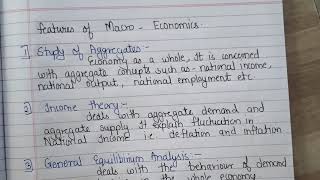 features of Macro - Economics.
1) Study of Aggregates :-
Economy as a whole, It is concerned
with aggregate concepts such as - national income,
national output, national employment etc
2) Income theory :-
deals with aggregate demand and
aggregate supply. It explain fluctuation in
National Income i.e. deflation and inflation
3) General Equilibrium Analysis :-
deals with the behaviour of demand
the whole economy